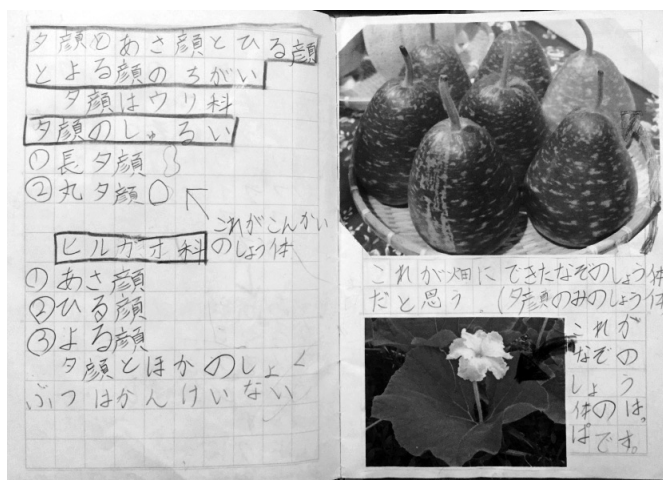 夕顔とあさ顔とひる顔
とよる顔のちがい
夕顔はウリ科
夕顔のしゅるい
①長夕顔
②丸夕顔
これがこんかい
のしょう体
ヒルガオ科
①あさ顔
②ひる顔
③よる顔
夕顔とほかのしょく
ぶつはかんけいない
これが畑にできたなぞのしょう体
だと思う。(夕顔のみのしょう体
これが
なぞの
しょう
体のは、
ぱです。